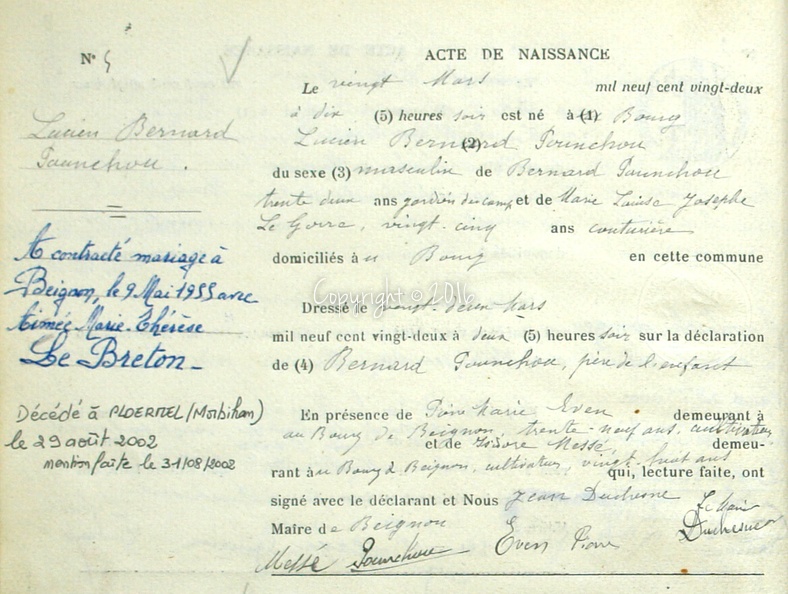 N° 5
Lucien Bernard
Pounchou.
A contracté mariage à
Beignon, le 9 Mai 1955 avec
Aimée Marie-Thérèse
Le Breton -
Décédé à PLOERMEL (Morbihan)
le 29 août 2002
mention faite le 31/08/2002
ACTE DE NAISSANCE
Le vingt Mars mil neuf cent vingt-deux
à dix (5) heures soir est né à (1) Bourg
Lucien Bernard (2) Pounchou
du sexe (3) masculin de Bernard Pounchou
trente deux ans gardien du camp et de Marie Louise Josephe
Le Gorre, vingt-cinq ans couturière
domiciliés au Bourg en cette commune
Dressé le vingt-deux Mars
mil neuf cent vingt-deux à deux (5) heures soir sur la déclaration
de (4) Bernard Pounchou, père de l'enfant
En présence de Marie Even demeurant à
au Bourg de Beignon, trente-neuf ans, cultivateur
et de Isidore Messé, demeu-
rant à au Bourg de Beignon, cultivateur, vingt-huit ans qui, lecture faite, ont
signé avec le déclarant et Nous Jean Duchesne
Maire de Beignon
Le Maire
Duchesne
Messé Pounchou Even Pierre
Copyright © 2016